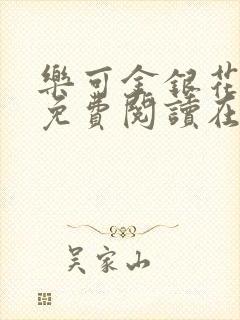 樂可金銀花
免費閱讀在
吳家山